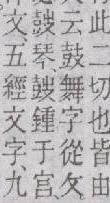 有此二切也皆由
云鼓舞字從攵
鼔琴鼔鍾于宮
文五經文字九